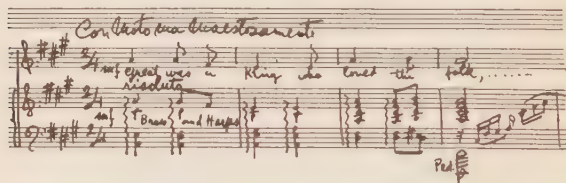 Con Moto ma Maestosamente
mf great was a King who loved the folk, ......
risoluto
mf Brass and Harps
Ped.